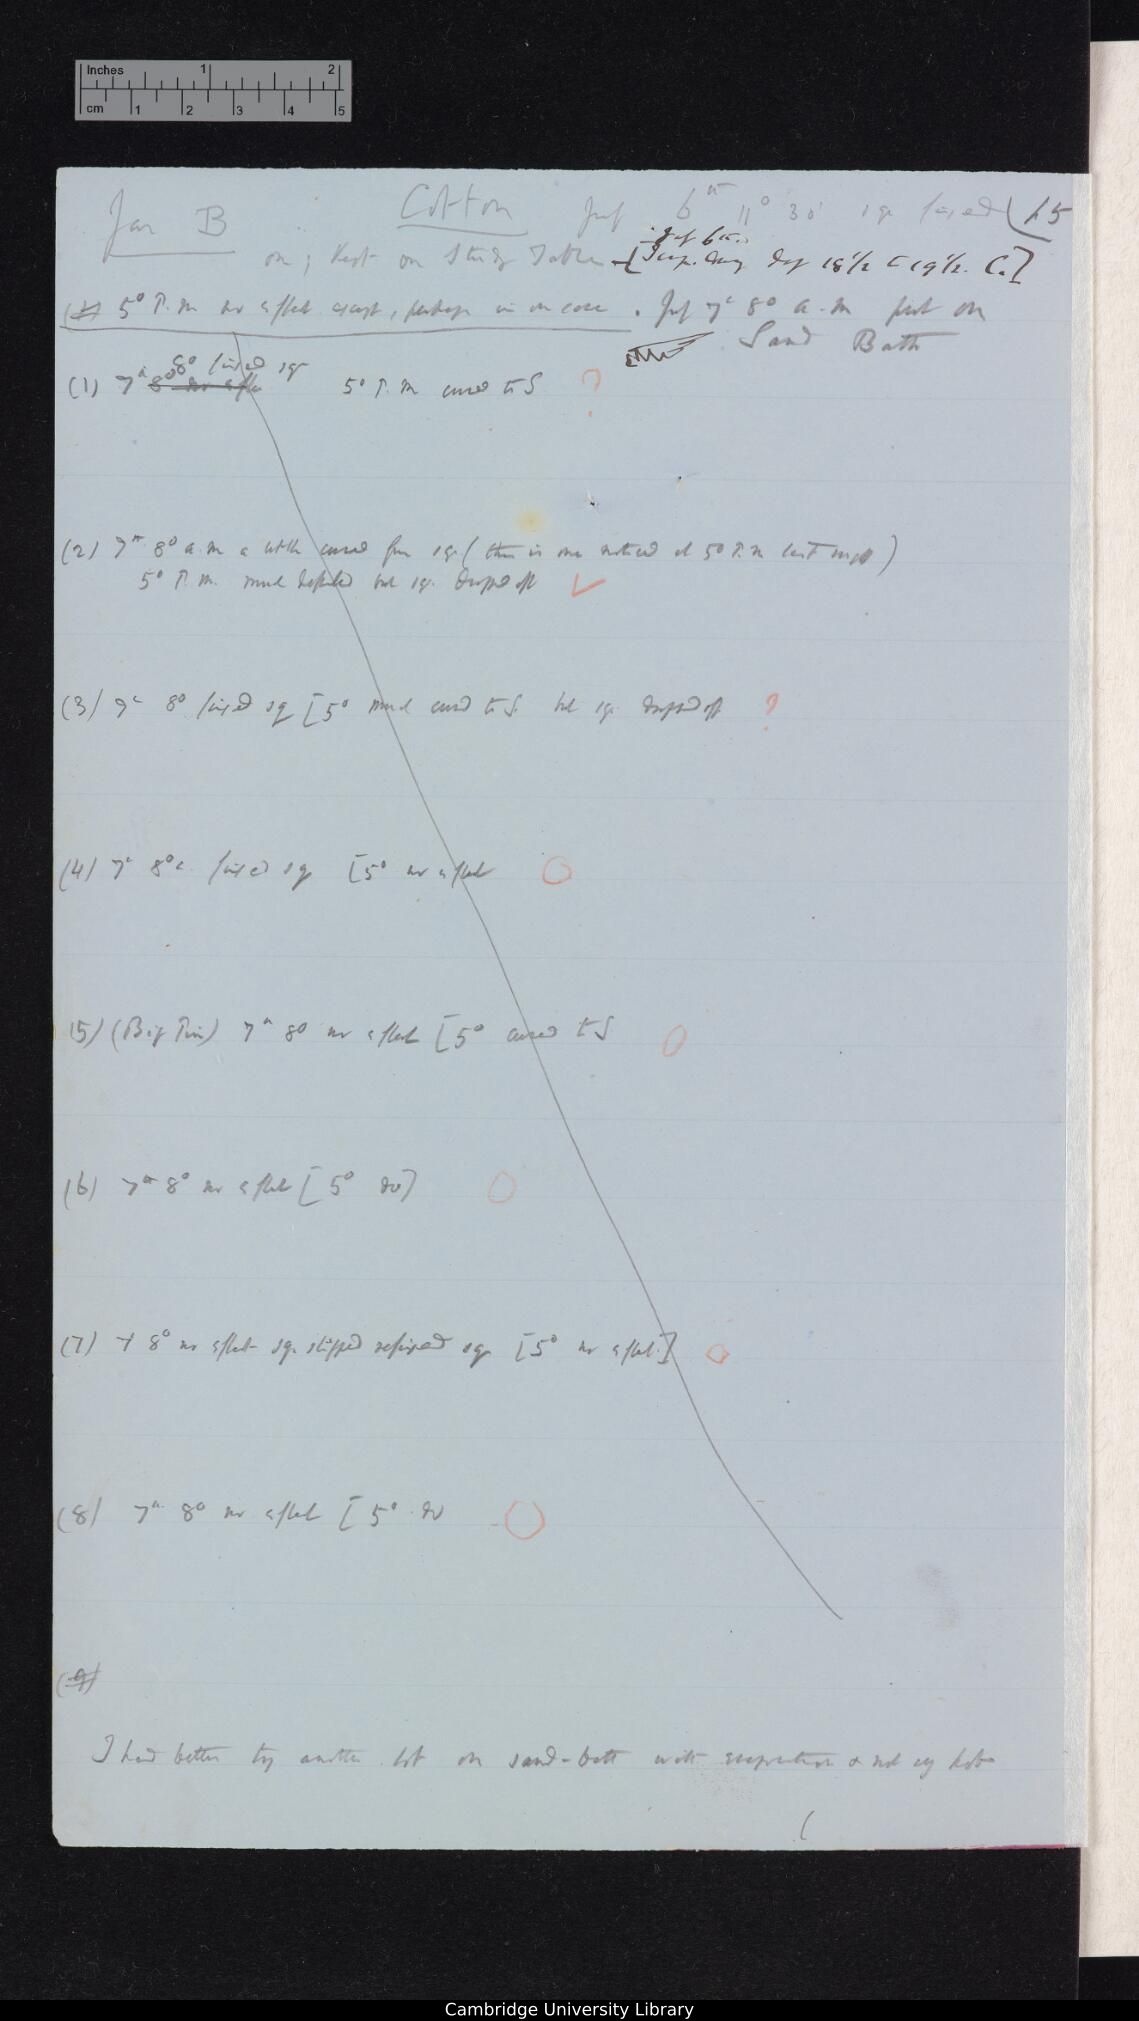 Inches 1 2
cm 1 2 3 4 5
Jar B Cotton July 6th 11° 30' sqs fixed (15
on; Kept on Study Table — [July 6th. Temp. during day 18 1/2 – 19 1/2. C.]
5° P.m no effect except, perhaps in one case. July 7th 8° a.m put on
Sand Bath
(1) 7th 8° fixed sqr 5° P.m curved to S ?
(2) 7th 8° a.m a little curved from sqr (this is one noticed at 5° P.m last night)
5° P.m. much deflected but sqr. dropped off ✓
(3) 7th 8° fixed sq [5° much curved to S but sqr dropped off ?
(4) 7th 8° fixed sqr [5° no effect O
(5) (Big Pin) 7th 8° no effect [5° curved to S O
(6) 7th 8° no effect [5° do] O
(7) 7 8° no effect sqr slipped refixed sqr [5° no effect] O
(8) 7th 8° no effect [5° do O
(9)
I had better try another lot on sand-bath with & not very hot
Cambridge University Library